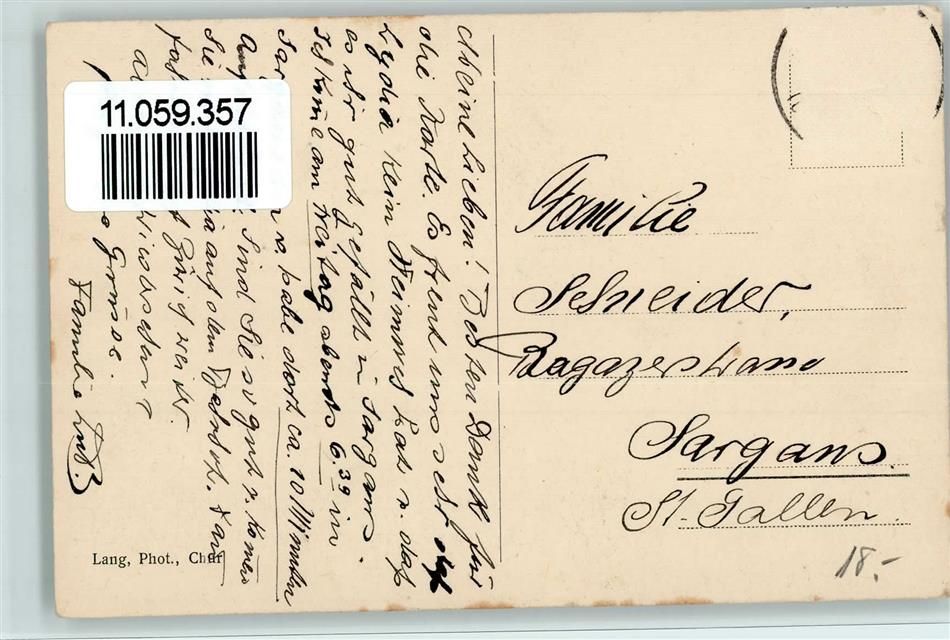 11.059.357
Meine Lieben! Besten Dank für
die Karte. Es freut uns sehr daß
Lydia kein Heimweh hat u. daß
es ihr gut gefällt in Sargans.
Ich kome am Freitag abends 6.39 in
Sargans u. habe dort ca. 10 Minuten
Sind Sie so gut u. komen
Sie auf den Bahnhof.
Zürich weiter.
Auf Wiedersehen
Grüsse.
Familie
Lang, Phot., Chur
Familie
Schneider,
Ragazerstrasse
Sargans
St. Gallen.
18.-